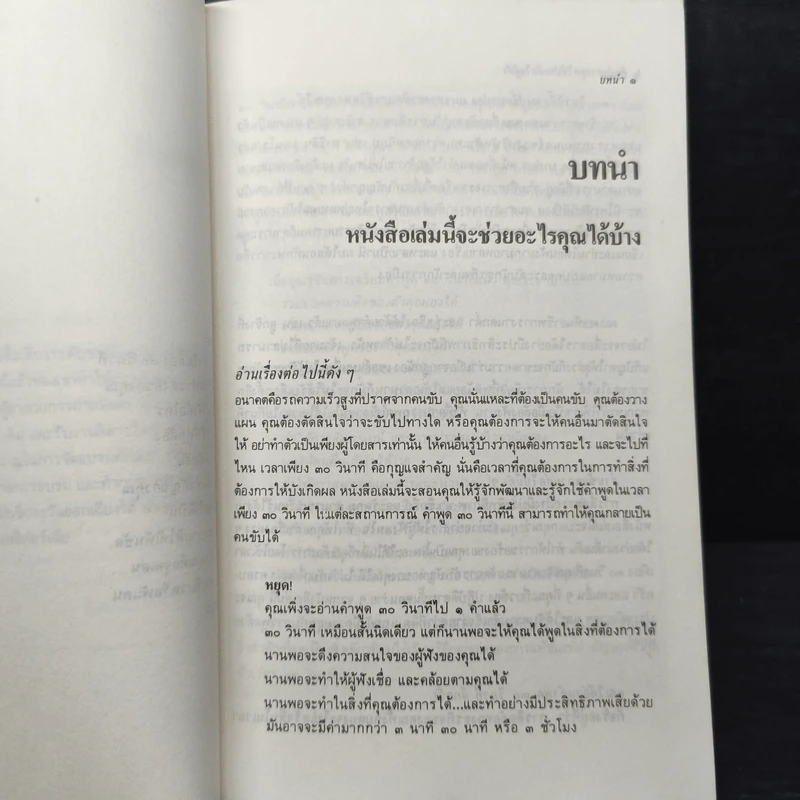 บทนำ ๑
บทนำ
หนังสือเล่มนี้จะช่วยอะไรคุณได้บ้าง
อ่านเรื่องต่อไปนี้ดัง ๆ
อนาคตคือรถความเร็วสูงที่ปราศจากคนขับ คุณนั่นแหละที่ต้องเป็นคนขับ คุณต้องวาง
แผน คุณต้องตัดสินใจว่าจะขับไปทางใด หรือคุณต้องการจะให้คนอื่นมาตัดสินใจ
ให้ อย่าทำตัวเป็นเพียงผู้โดยสารเท่านั้น ให้คนอื่นรู้บ้างว่าคุณต้องการอะไร และจะไปที่
ไหน เวลาเพียง ๓๐ วินาที คือกุญแจสำคัญ นั่นคือเวลาที่คุณต้องการในการทำสิ่งที่
ต้องการให้บังเกิดผล หนังสือเล่มนี้จะสอนคุณให้รู้จักพัฒนาและรู้จักใช้คำพูดในเวลา
เพียง ๓๐ วินาที ในแต่ละสถานการณ์ คำพูด ๓๐ วินาทีนี้ สามารถทำให้คุณกลายเป็น
คนขับได้
หยุด!
คุณเพิ่งจะอ่านคำพูด ๓๐ วินาทีไป ๑ คำแล้ว
๓๐ วินาที เหมือนสั้นนิดเดียว แต่ก็นานพอจะให้คุณได้พูดในสิ่งที่ต้องการได้
นานพอจะดึงความสนใจของผู้ฟังของคุณได้
นานพอจะทำให้ผู้ฟังเชื่อ และคล้อยตามคุณได้
นานพอจะทำในสิ่งที่คุณต้องการได้...และทำอย่างมีประสิทธิภาพเสียด้วย
มันอาจจะมีค่ามากกว่า ๓ นาที ๓๐ นาที หรือ ๓ ชั่วโมง